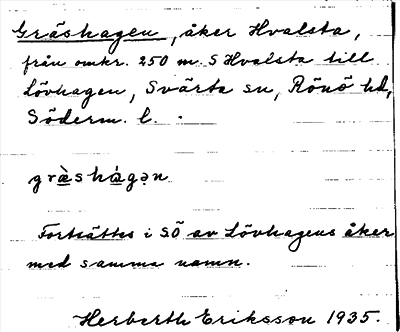 Gräshagen, åker Hvalsta,
från omkr. 250 m. S Hvalsta till
Lövhagen, Svärta sn, Rönö hd,
Söderm. l.
gràshágən
Fortsättes i SÖ av Lövhagens åker
med samma namn.
Herberth Eriksson 1935.